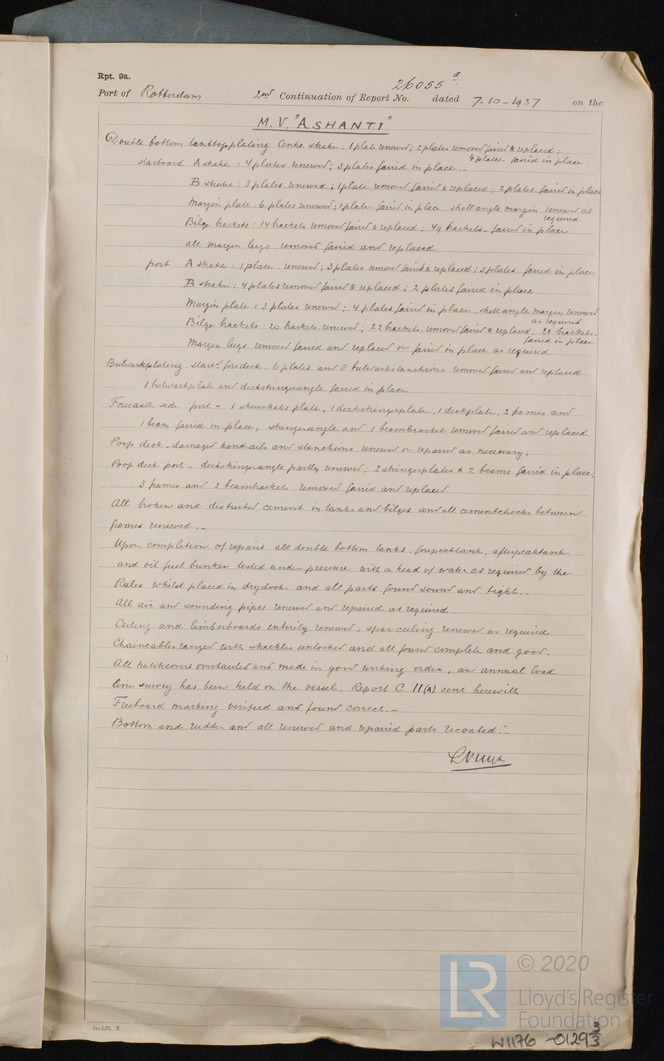 Rpt. 9a.
26055 a
Port of Rotterdam 2nd Continuation of Report No. dated 7-10-1937 on the
M.V. "ASHANTI"
Double bottom tanktopplating Centre strake: 1 plate renewed; 2 plates removed faired & replaced;
4 plates faired in place
starboard A strake: 4 plates renewed; 3 plates faired in place.-
B strake: 3 plates renewed; 1 plate removed faired & replaced; 2 plates faired in place
Margin plate: 6 plates renewed; 1 plate faired in place shell angle margin renewed as
required.
Bilge brackets: 14 brackets removed faired & replaced; 49 brackets faired in place
all margin lugs removed faired and replaced
port A strake: 1 plate renewed; 3 plates removed faired & replaced; 3 plates faired in place
B strake: 4 plates removed faired & replaced; 2 plates faired in place.
Margin plate: 3 plates renewed; 4 plates faired in place. shell angle margin renewed
as required
Bilge brackets: 20 brackets renewed; 22 brackets removed faired & replaced. 21 brackets
faired in place
Margin lugs removed faired and replaced or faired in place as required
Bulwarkplating starb. foredeck. 6 plates and 8 bulwarkstanchions removed faired and replaced
1 bulwarkplate and deckstringerangle faired in place
Forecastle side port - 1 sheerstrake plate, 1 deckstringerplate, 1 deckplate, 2 frames and
1 beam faired in place, stringerangle and 1 beambracket removed faired and replaced
Poop deck - damaged handrails and stanchions renewed or repaired as necessary.
Poop deck port - deckstringerangle partly renewed, 2 stringerplates & 2 beams faired in place;
3 frames and 2 beambrackets removed faired and replaced
All broken and disturbed cement in tanks and bilges and all cementchocks between
frames renewed.-
Upon completion of repairs all double bottom tanks, forepeaktank, afterpeaktank
and oil fuel bunker tested under pressure with a head of water as required by the
Rules whilst placed in drydock and all parts found sound and tight.-
All air and sounding pipes renewed and repaired as required
Ceiling and limberboards entirely renewed, spar ceiling renewed as required
Chaincables ranged with shackles unlocked and all found complete and good.
All hatchcovers overhauled and made in good working order, an annual load
line survey has been held on the vessel. Report C 11(A) sent herewith
Freeboard marking verified and found correct.-
Bottom and rudder and all renewed and repaired parts recoated.-
LR
© 2020
Lloyd's Register
Foundation
W1176-01293